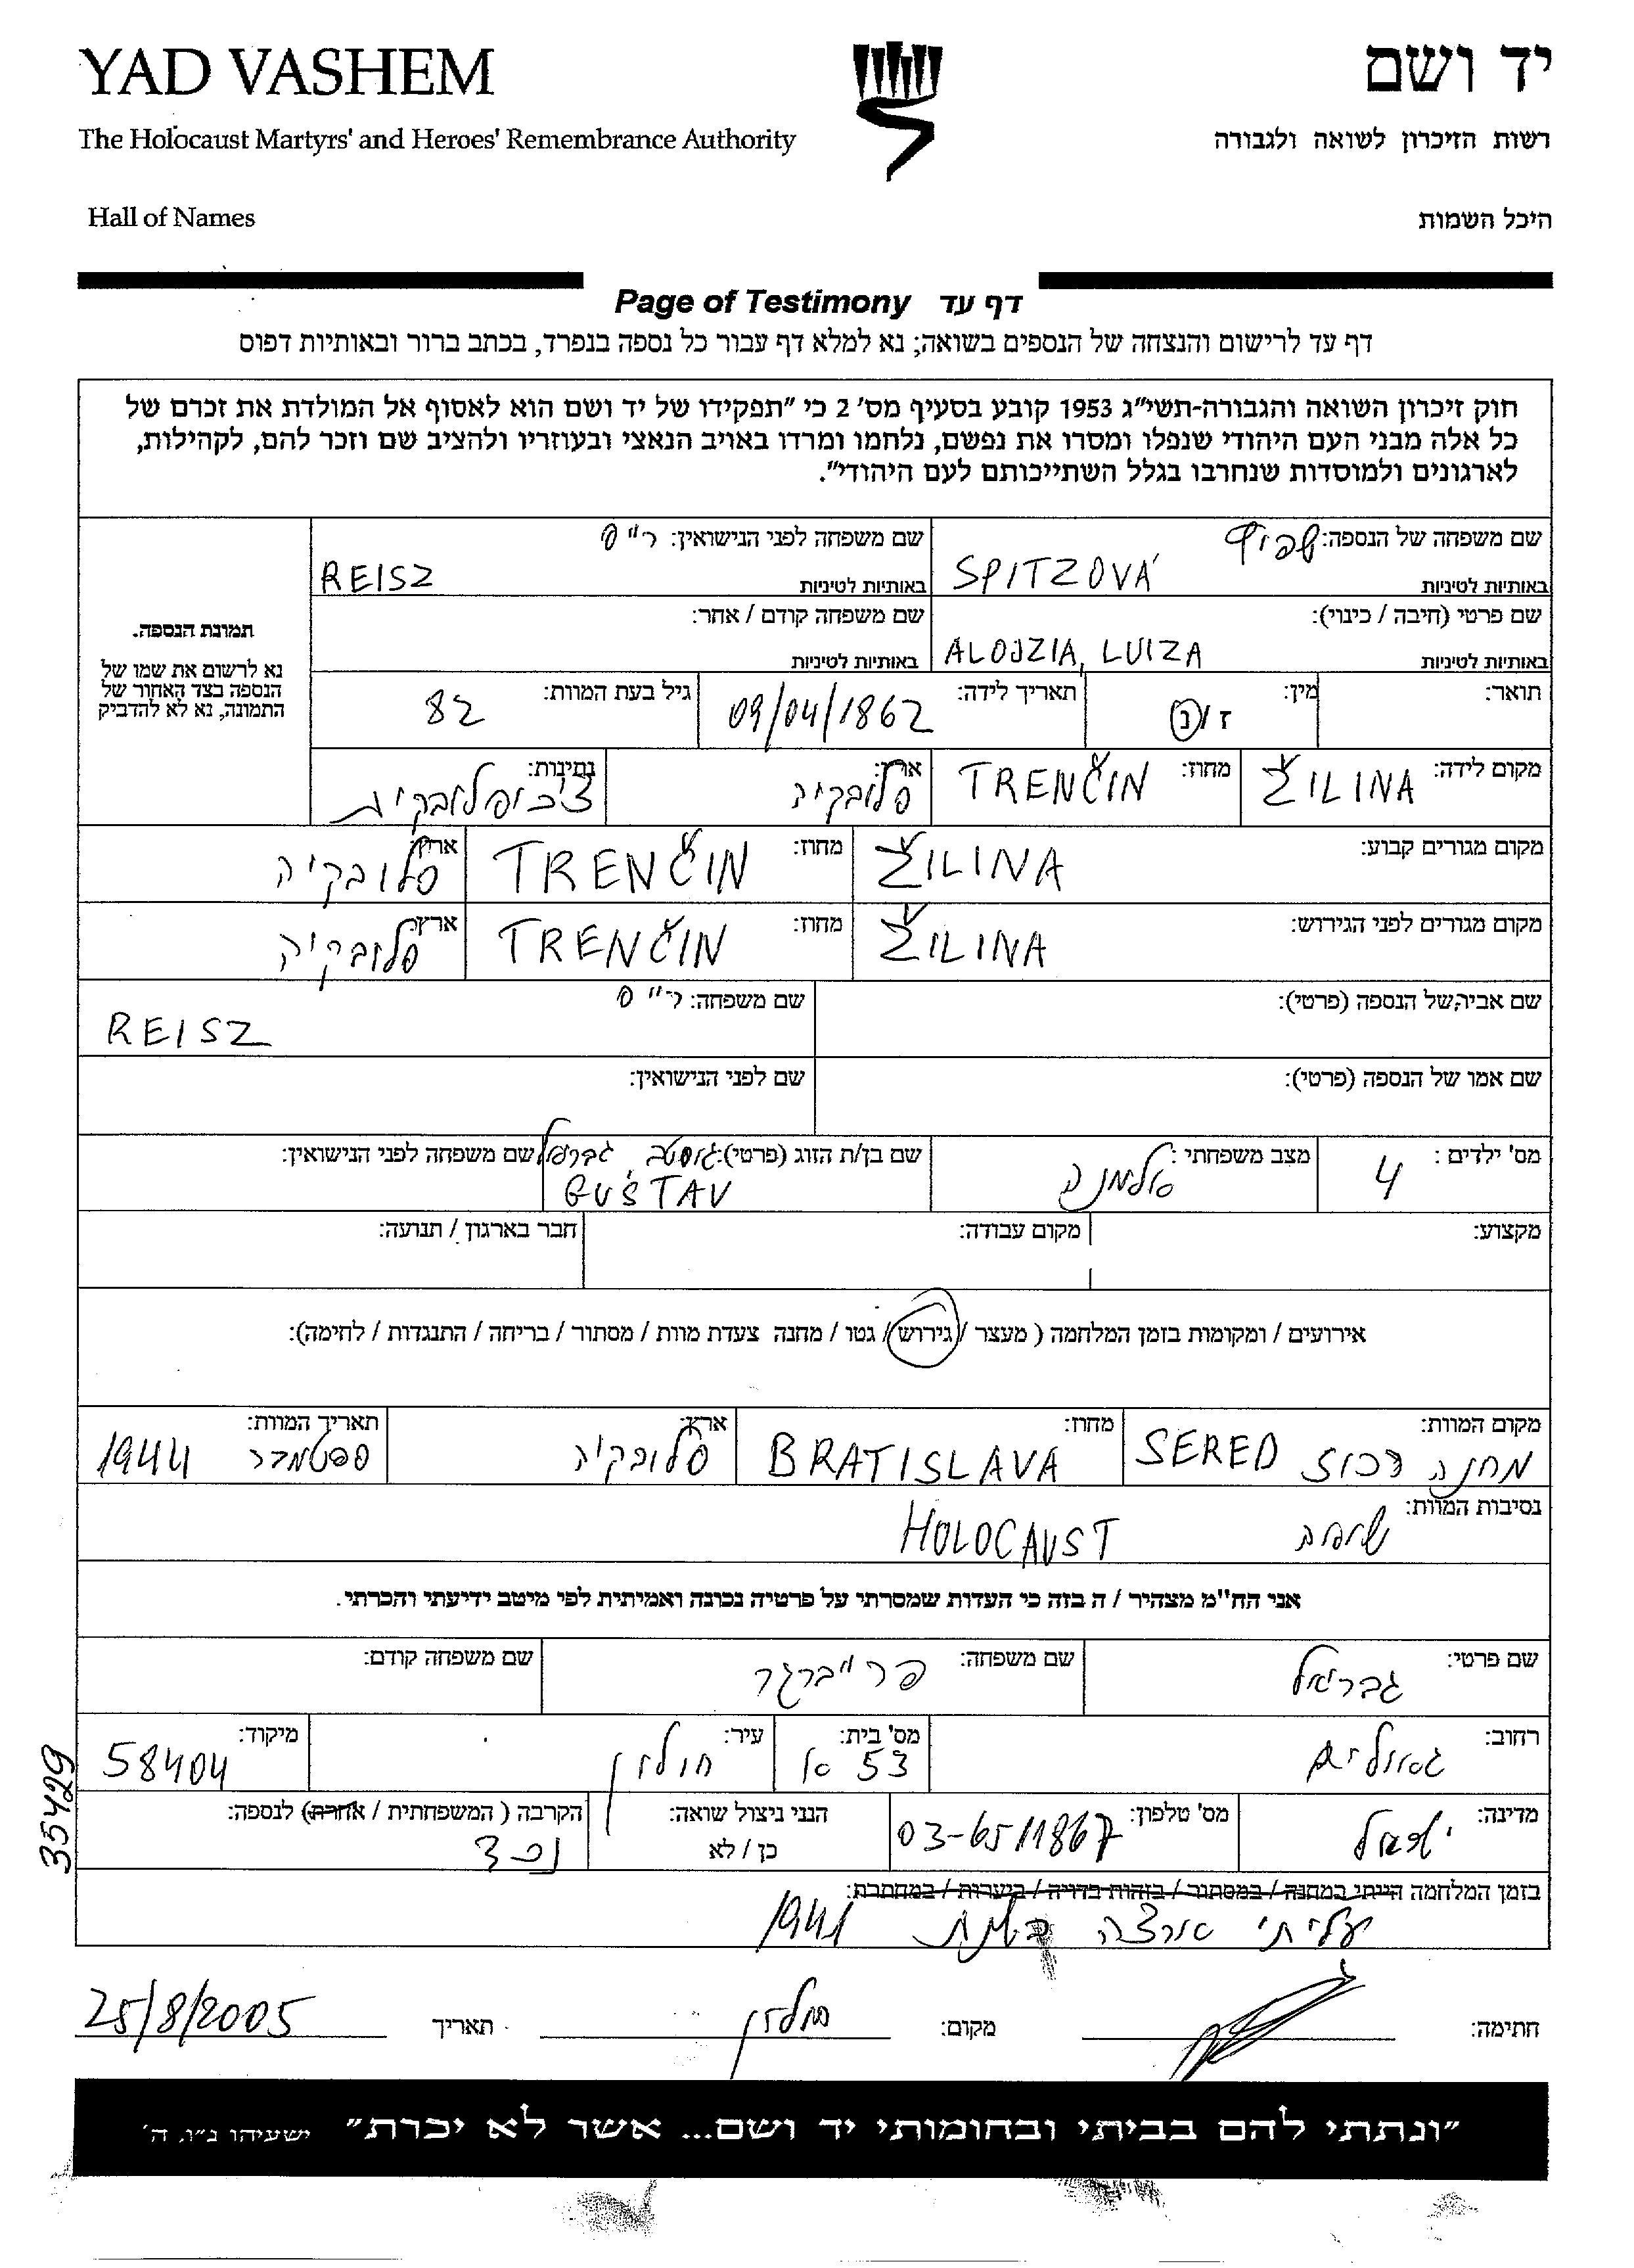 YAD VASHEM
יד ושם
The Holocaust Martyrs' and Heroes' Remembrance Authority
רשות הזיכרון לשואה ולגבורה
Hall of Names
היכל השמות
Page of Testimony דף עד
דף עד לרישום והנצחה של הנספים בשואה; נא למלא דף עבור כל נספה בנפרד, בכתב ברור ובאותיות דפוס
חוק זיכרון השואה והגבורה-תשי״ג 1953 קובע בסעיף מס׳ 2 כי ״תפקידו של יד ושם הוא לאסוף אל המולדת את זכרם של
כל אלה מבני העם היהודי שנפלו ומסרו את נפשם, נלחמו ומרדו באויב הנאצי ובעוזריו ולהציב שם וזכר להם, לקהילות,
לארגונים ולמוסדות שנחרבו בגלל השתייכותם לעם היהודי״.
שם משפחה של הנספה: שפיץ
באותיות לטיניות SPITZOVÁ
שם משפחה לפני הנישואין: רייס
באותיות לטיניות REISZ
תמונת הנספה.
נא לרשום את שמו של
הנספה בצד האחור של
התמונה, נא לא להדביק
שם פרטי (חיבה / כינוי):
באותיות לטיניות ALOJZIA, LUIZA
שם משפחה קודם / אחר:
באותיות לטיניות
תואר:
מין: ז / נ
תאריך לידה: 09/04/1862
גיל בעת המוות: 82
מקום לידה: ŽILINA
מחוז: TRENČIN
ארץ: סלובקיה
נתינות: צ'כוסלובקית
מקום מגורים קבוע: ŽILINA
מחוז: TRENČIN
ארץ: סלובקיה
מקום מגורים לפני הגירוש: ŽILINA
מחוז: TRENČIN
ארץ: סלובקיה
שם אביו של הנספה (פרטי):
שם משפחה: רייס
REISZ
שם אמו של הנספה (פרטי):
שם לפני הנישואין:
מס׳ ילדים: 4
מצב משפחתי: אלמנה
שם בן/ת הזוג (פרטי): גוסטב גבריאל
GUSTAV
שם משפחה לפני הנישואין:
מקצוע:
מקום עבודה:
חבר בארגון / תנועה:
אירועים / ומקומות בזמן המלחמה ( מעצר / גירוש / גטו / מחנה צעדת מוות / מסתור / בריחה / התנגדות / לחימה):
מקום המוות:
מחנה רכוז SERED
מחוז: BRATISLAVA
ארץ: סלובקיה
תאריך המוות:
ספטמבר 1944
נסיבות המוות:
שואה HOLOCAUST
אני הח"מ מצהיר / ה בזה כי העדות שמסרתי על פרטיה נכונה ואמיתית לפי מיטב ידיעתי והכרתי.
שם פרטי: גבריאל
שם משפחה: פרייברגר
שם משפחה קודם:
רחוב: גאולים
מס׳ בית: 53 א
עיר: חולון
מיקוד: 58404
מדינה: ישראל
מס׳ טלפון: 03-6511867
הנני ניצול שואה:
כן / לא
הקרבה ( המשפחתית / אחרת) לנספה:
נכד
35429
בזמן המלחמה הייתי במחנה / במסתור / בזהות בדויה / ביערות / במחתרת:
עליתי ארצה בשנת 1941
חתימה:
מקום: חולון
תאריך 25/8/2005
״ונתתי להם בביתי ובחומותי יד ושם... אשר לא יכרת״ ישעיהו נ״ו, ה׳